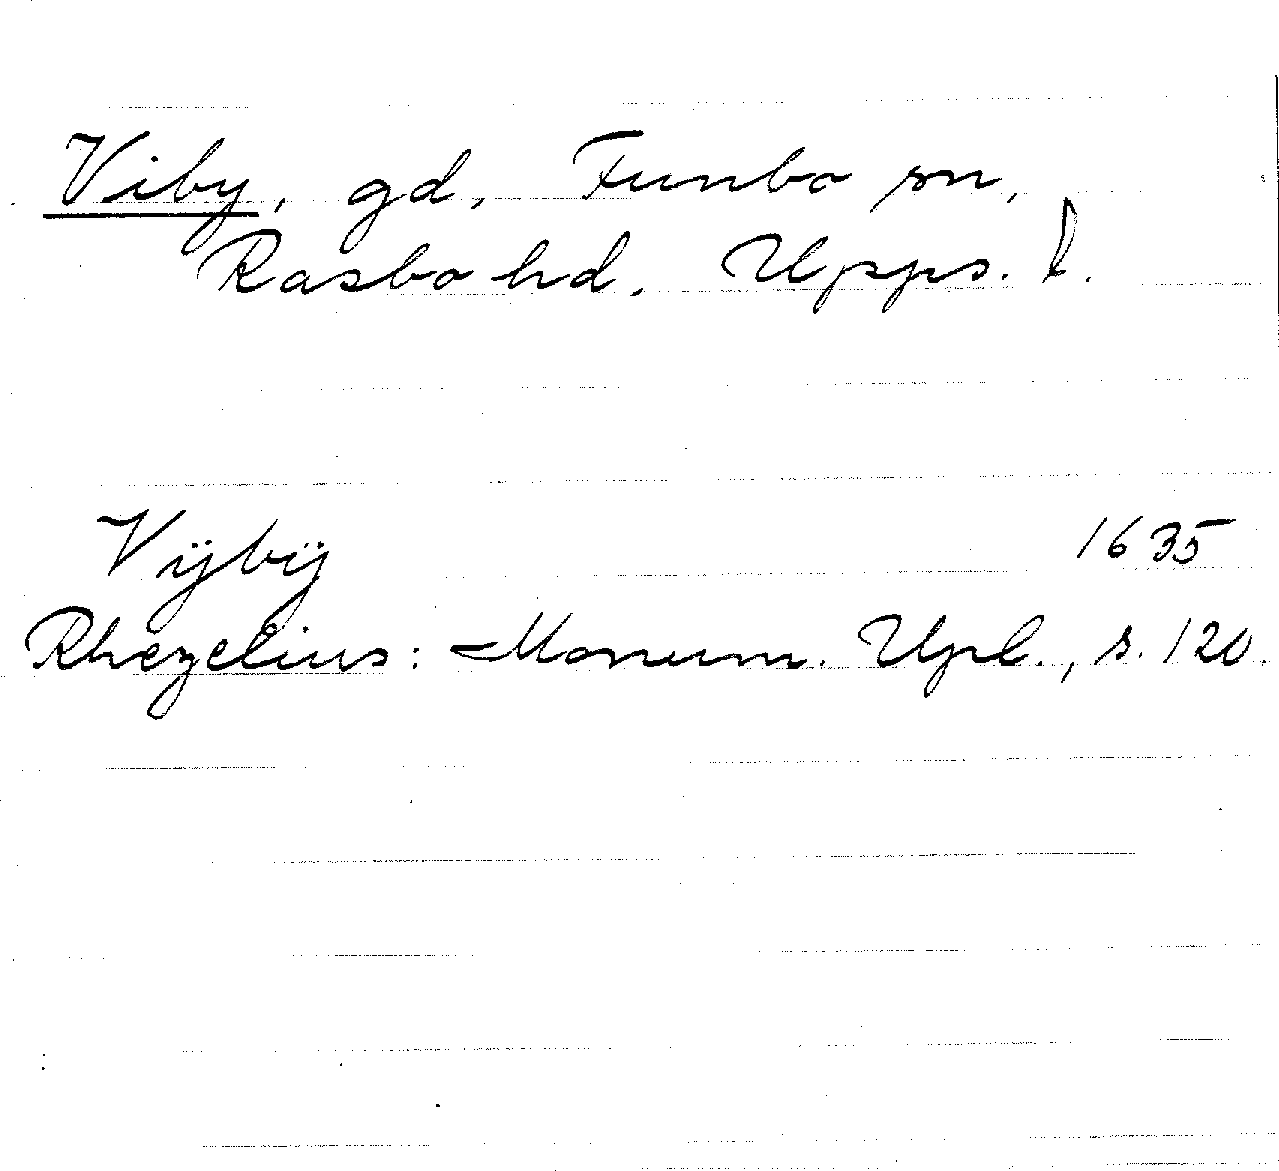 Viby, gd, Funbo sn,
Rasbo hd, Upps. l.
Vÿbÿ 1635
Rhezelius: Monum. Upl., s. 120.